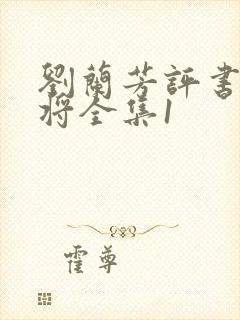 劉蘭芳評書
將全集1
霍尊